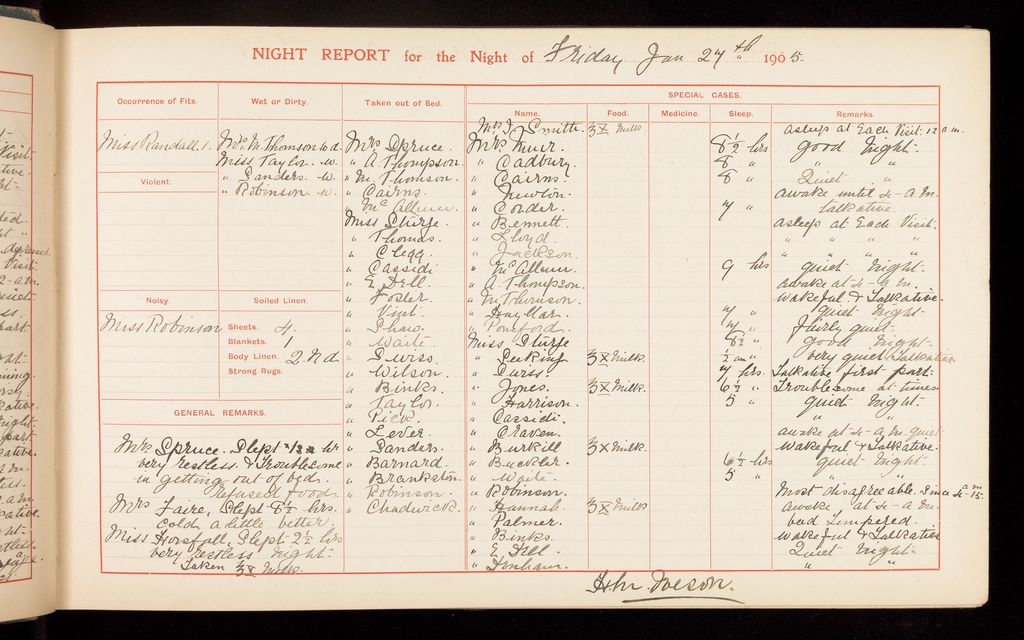 NIGHT REPORT for the Night of Friday Jan 27th 1905.
Occurrence of Fits.
Miss Randall. 1.
Violent.
Noisy.
Miss Robinson
Wet or Dirty.
Mrs. M. Thomson w.d.
Miss Taylor. w.
" Sanders. w.
" Robinson. w.
Soiled Linen.
Sheets. 4.
Blankets. 1
Body Linen. 2. N d.
Strong Rugs.
GENERAL REMARKS.
Mrs Spruce. Slept hr
very restless & troublesome
in getting out of bed.
Refused food.
Mrs Faire, Slept 8½ hrs.
Cold a little better.
Miss Horsfall, Slept 2½ hrs
very restless night.
Taken 3x Milk.
Taken out of Bed.
Mrs Spruce.
" A. Thompson.
" M. Thomson.
" Cairns.
" McAllum.
Miss Sturge.
" Thomas.
" Clegg.
" Cassidi
" E. Dell.
" Foster
" Visit.
" Shaw.
" Waite.
" Swiss.
" Wilson.
" Binks.
" Taylor.
" Pick.
" Lever.
" Sanders.
" Barnard.
" Brankston.
" Robinson.
" Chadwick.
SPECIAL CASES.
Name. Food. Medicine. Sleep. Remarks.
Mrs J. Smith. 3x Milk. asleep at Each Visit. 12 a m.
Mrs. Muir. 8½ hrs good night.
" Cadbury. 8 " " "
" Cairns. 8 " Quiet "
" Newton. awake until 4 - a m.
" Conder. 7 " talkative.
" Bennett. asleep at Each Visit.
" Lloyd. " " " "
" Jackson. " " " "
" McAllum. 9 hrs quiet night.
" A. Thompson. awake at 4 - a m.
" M. Thomson. wakeful & Talkative.
" Hayllar. 7 " quiet night.
" Poniford. 7 " fairly quiet.
Miss Sturge 8½ " good night.
" Seeking. 3x Milk. very quiet Talkative
" Swiss. 7 hrs. Talkative first part.
" Jones. 3x Milk. 6½ " Troublesome at times.
" Harrison. 5 " quiet night.
" Cassidi. " "
" Craven. awake at 4 - a m. quiet
" Burkill 3x Milk. wakeful & Talkative.
" Buckler. 6½ hrs quiet night.
" Waite. 5 " " "
" Robinson. Most disagreeable.
" Hannah. 3x Milk awake at 4 - a m.
" Palmer. bad tempered.
" Binks. wakeful & Talkative
" E. Dell. Quiet night.
" Denham. " "